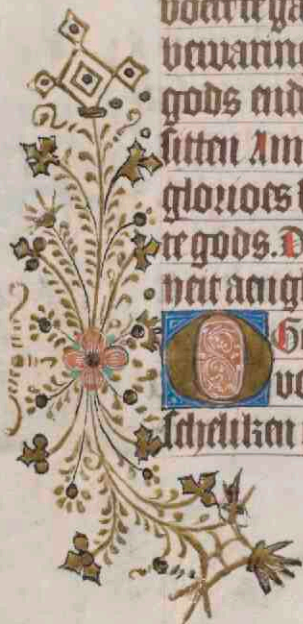 bewarin
gods ende
sitten Am
glorioes
te gods. D
heit aeng
O
ve
scheliken